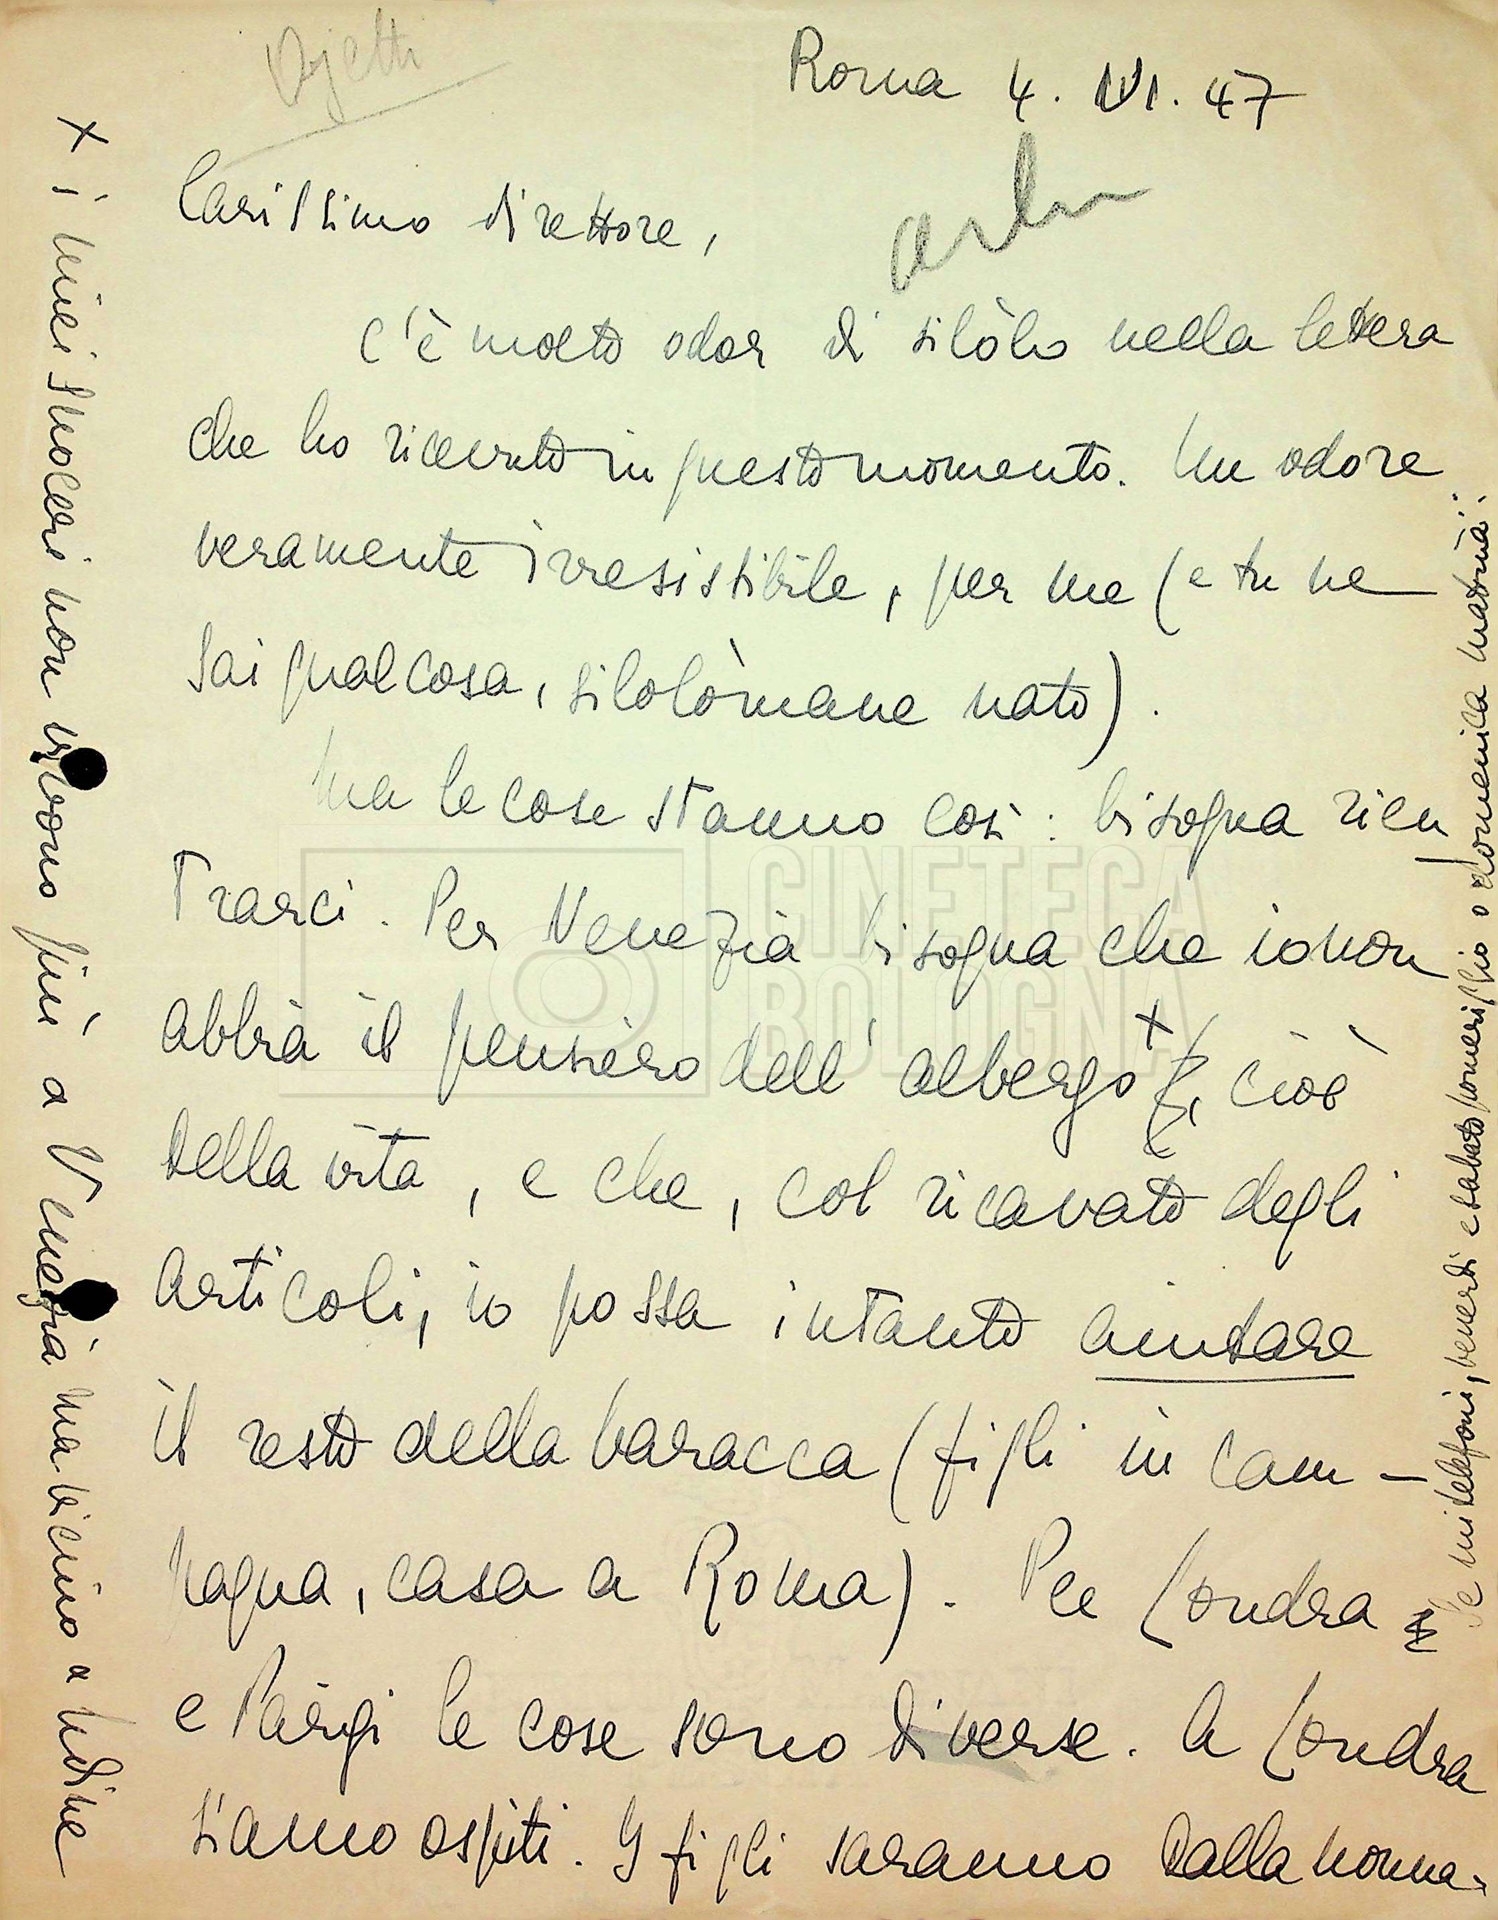 Ojetti
Roma 4. VI. 47
Carissimo direttore,
c'è molto odor di silòlo nella lettera
che ho ricevuto in questo momento. Un odore
veramente irresistibile, per me (e tu ne
sai qualcosa, silolòmane nato).
Ma le cose stanno così: bisogna rien
trarci. Per Venezia bisogna che io non
abbia il pensiero dell'albergo +, cioè
della vita, e che, col ricavato degli
articoli, io possa intanto aiutare
il resto della baracca (figli in cam-
pagna, casa a Roma). Per Londra
e Parigi le cose sono diverse. A Londra
siamo ospiti. I figli saranno dalla nonna.
+ i miei suoceri non vivono più a Venezia ma vicino a Udine
Se mi telefoni, venerdì e sabato pomeriggio o domenica mattina..
CINETECA
BOLOGNA